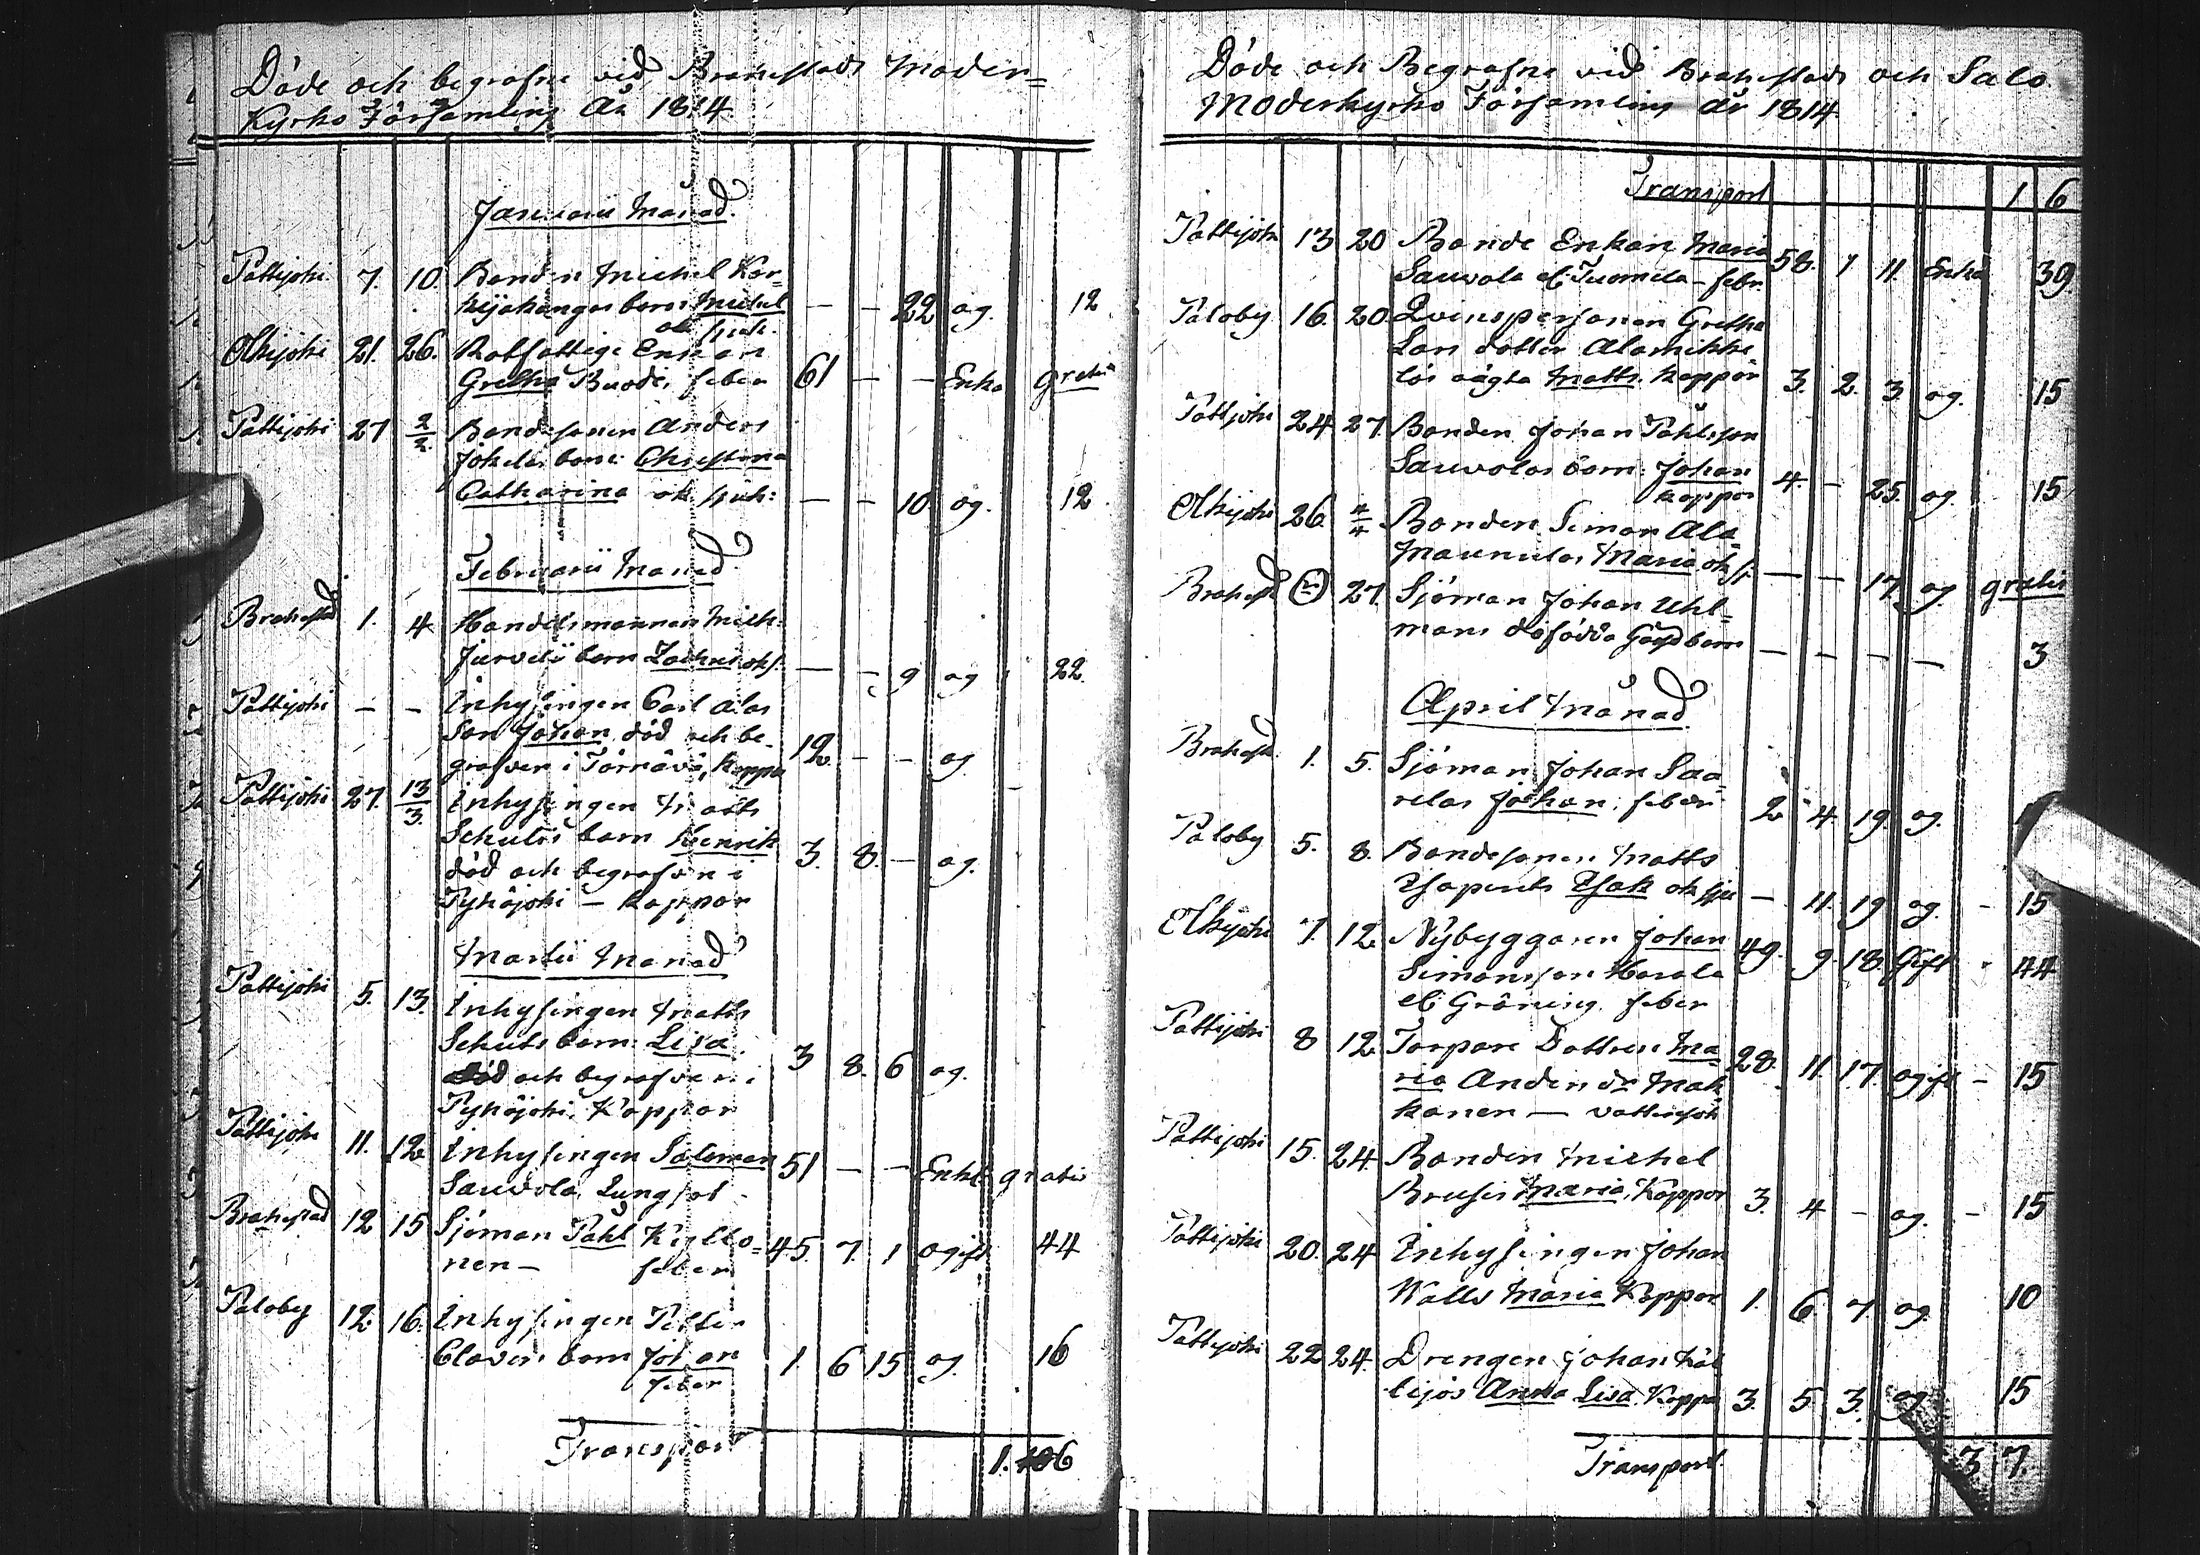 Döde och begrafne vid Brahestads Moder=
Kyrko Församling År 1814.
Januarii Månad.
Pattijoki 7. 10. Bonden Michel Kor=
kijakangas barn Michel — — 22 og. 12
ok sjuk.
Olkijoki 21. 26. Rotfattige Enkan
Gretha Buode, feber 61 — — Enka gratis
Pattijoki 27 2/2. Bondesonen Anders
Jokelas barn: Christina
Catharina ok sjuk: — — 10 og. 12
Februarii Månad.
Brahestad 1. 4 Handelsmannen Mich:
Jurvelii barn Zachris oks. — — 9 og 22.
Pattijoki — — Inhysingen Carl Alas
Son Johan död och be-
grafven i Torneå, Koppor 12 — — og
Pattijoki 27. 13/3. Inhysingen Matts
Schults barn Henrik 3. 8. — og.
död och begrafven i
Pyhäjoki — Koppor
Martii Månad
Pattijoki 5. 13. Inhysingen Matts
Schults barn: Lisa. 3 8. 6 og.
död och begrafven i
Pyhäjoki, Koppor
Pattijoki 11. 12 Inhysingen Salomon 51 — — Enkl. gratis
Sauvola, Lungsot
Brahestad 12 15 Sjöman Påhl Kyllö= 45. 7. 1 ogift 44
nen — feber
Paloby 12. 16. Inhysingen Petter
Clavers barn Johan 1. 6 15 og. 16
feber
Transport 1. 6
Döde och Begrafne vid Brahestads och Salo
Moderkyrko Församling år 1814.
Transport 1 6
Pattijoki 13 20 Bonde Enkan Maria 58. 1 11. Enka 39
Sauvola el. Tuomela — febr.
Paloby 16. 20. Qvinspersonen Gretha
Lars dotter Alamikke
lös oägta Matts. Koppor 3. 2. 3 og. 15
Pattijoki 24 27. Bonden Johan Påhlsson
Sauvolas barn: Johan 4. — 25. og 15
koppor
Olkijoki 26. 4/4 Bonden Simon Ala-
Maunulas Maria ok sj. — — 17. og. gratis
Brahest. 27. Sjöman Johan Uhl=
mans dödfödda Gossebarn — — — — 3
April Månad.
Brahest. 1. 5. Sjöman Johan Saa
relas Johan, feber 2 4. 19 og.
Paloby 5. 8. Bondesonen Matts
Isak ok sju — 11. 19 og. - 15
Olkijoki 7. 12. Nybyggaren Johan 49. 9. 18. Gift - 44
Simonsson Harala
el. Gröning, feber
Pattijoki 8 12. Torpare Dottren Ma 28. 11. 17. ogift - 15
ria Anders dr Mak
konen — vattusot
Pattijoki 15. 24. Bonden Michel
Brusis Maria, Koppor 3. 4 — og. - 15
Pattijoki 20. 24 Inhysingen Johan
Walls Maria Koppor 1. 6 7. og. 10
Pattijoki 22 24. Drengen Johan
Anna Lisa Koppor 3. 5 3. og. 15
Transport 3 7.